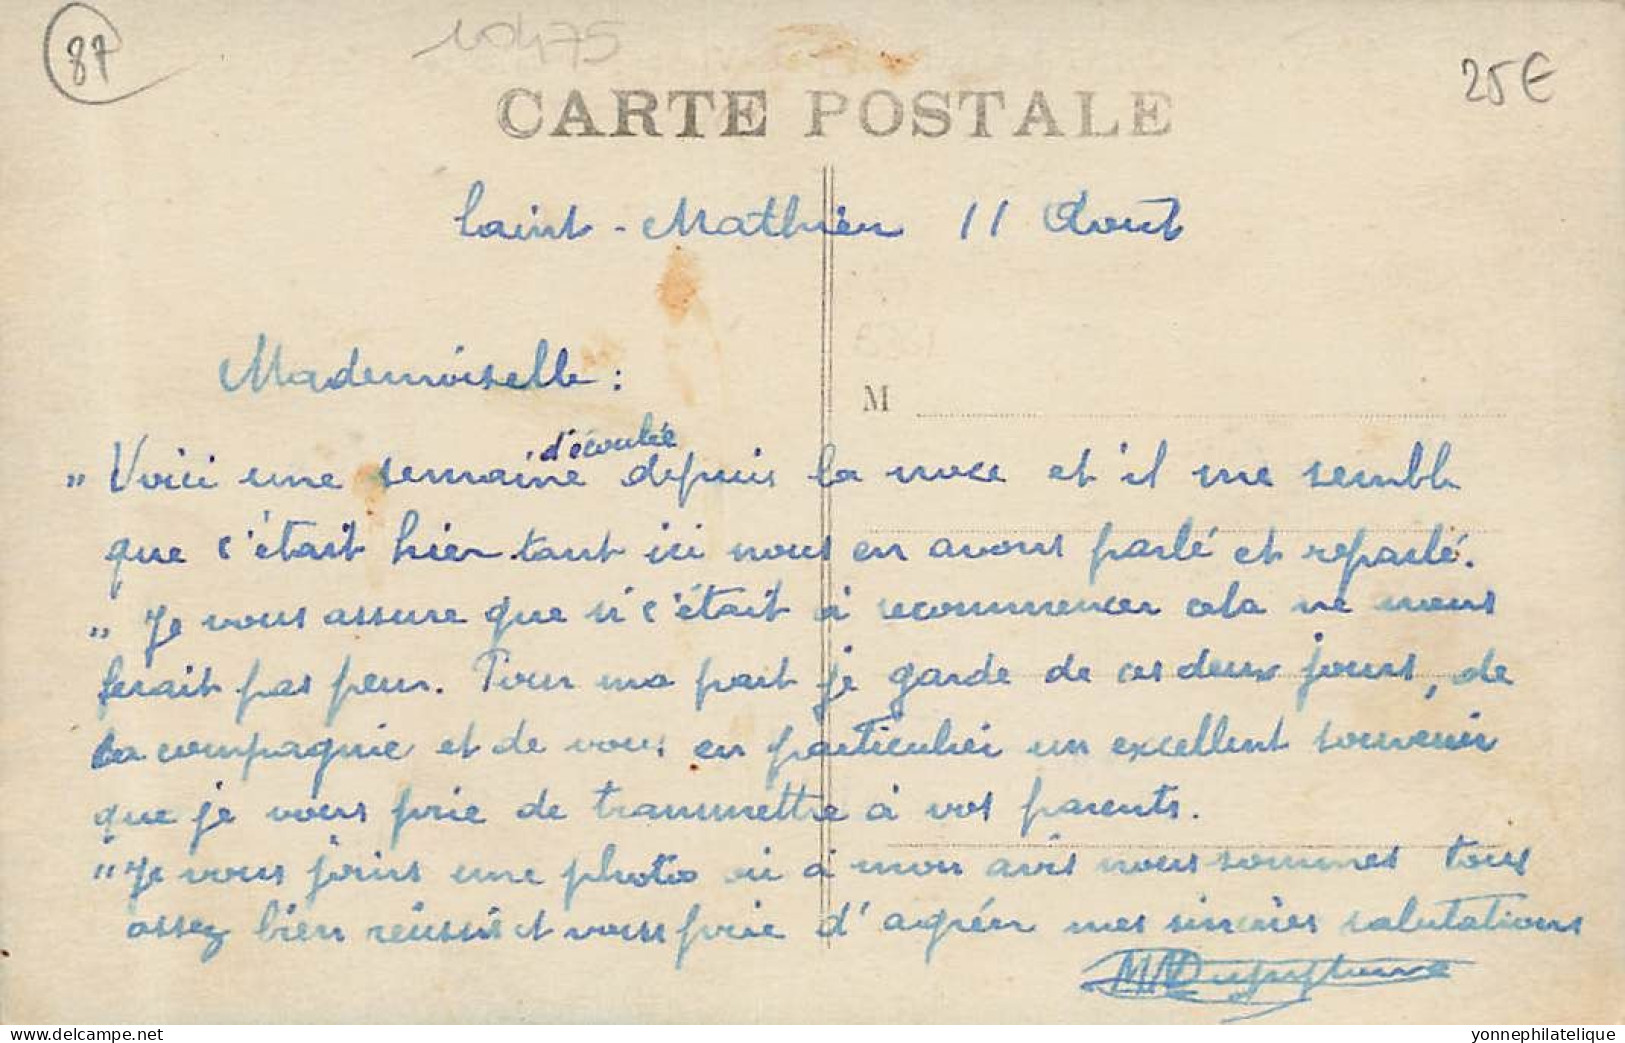 87
10475
25€
CARTE POSTALE
Saint-Mathieu 11 Aout
Mademoiselle :
M
d'écoulée
" Voici une semaine depuis la noce et il me semble
que c'était hier tant ici nous en avons parlé et reparlé.
" Je vous assure que si c'était à recommencer cela ne nous
ferait pas peur. Pour ma part je garde de ces deux jours, de
la compagnie et de vous en particulier un excellent souvenir
que je vous prie de transmettre à vos parents.
" Je vous joins une photo où à mon avis nous sommes tous
assez bien réussis et vous prie d'agréer mes sincères salutations
delcampe.net
yonnephilatelique